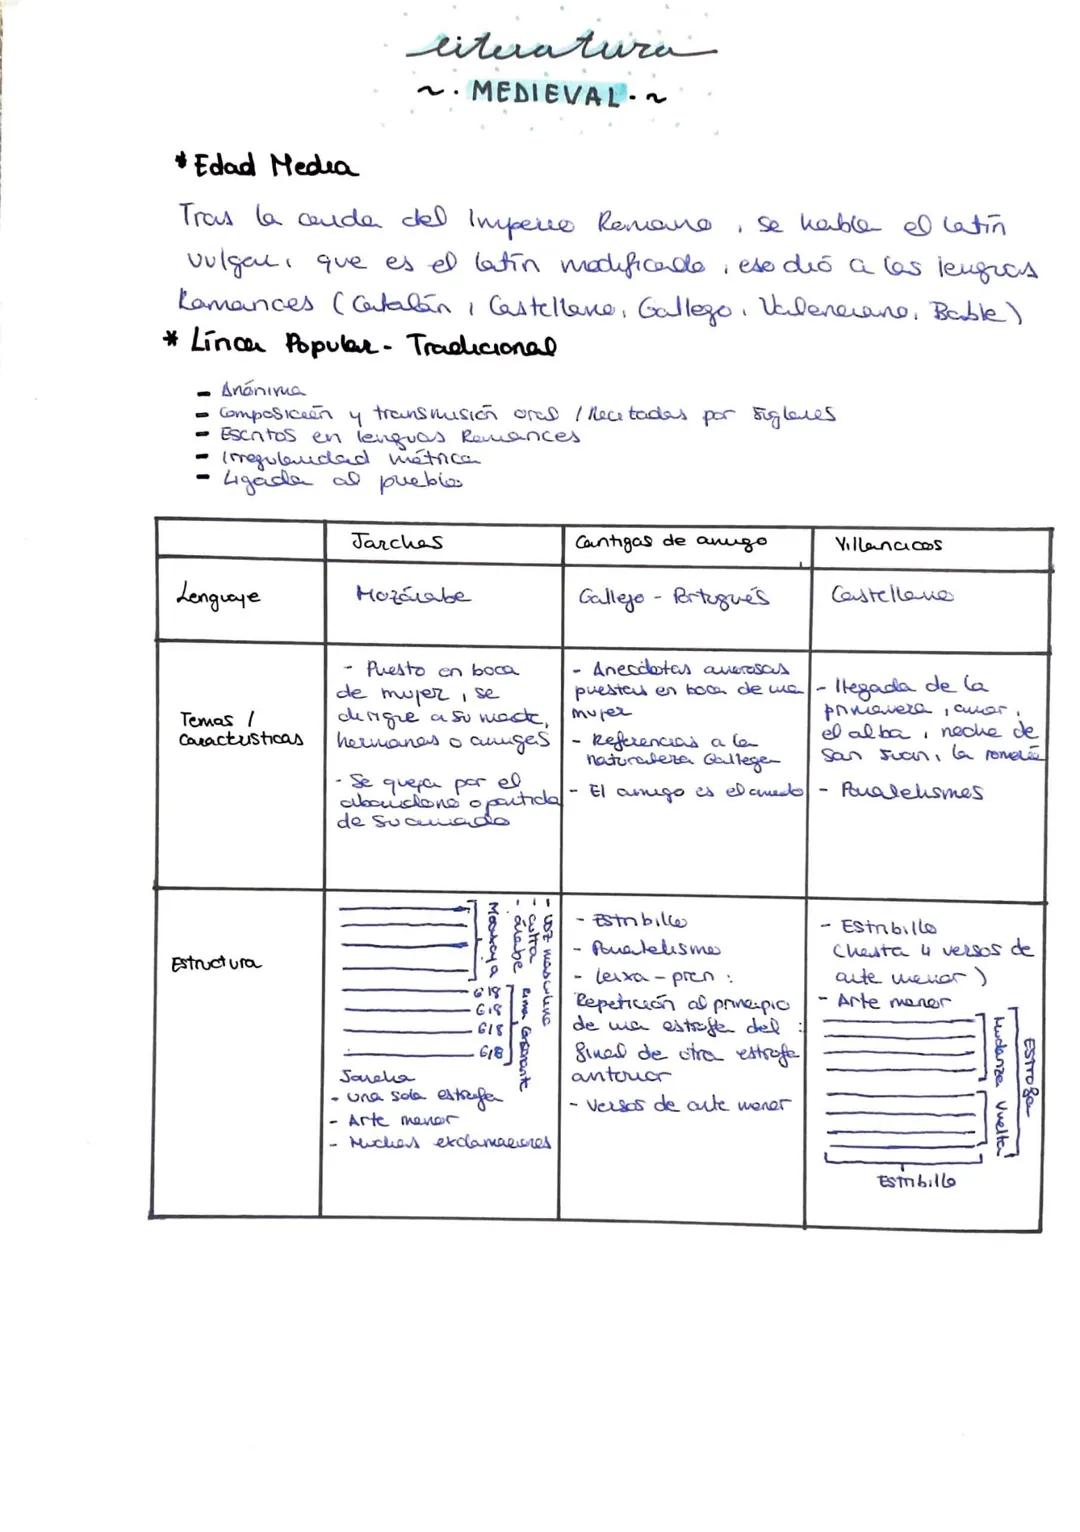 literatura
~. MEDIEVAL.~
* Edad Media
Tras la caida del Imperio Romano, se habla el latín
vulgar, que es el latín modificado, eso dió a las lenguas
Romances (Catalán, Castellano, Gallego, Valenciano, Bable)
* Línea Popular - Tradicional
- Anónima
- Composición y transmisión oral / Recitadas por Juglares
- Escritos en lenguas Romances
- Irregularidad métrica
- Ligada al pueblo
Jarchas
Cantigas de amigo
Villancicos
Lenguaje
Mozárabe
Gallego - Portugués
Castellano
Temas /
Características
- Puesto en boca
de mujer, se
dirigre a su madre,
hermanas o amigas
- Se queja por el
abandono o partida
de su amado
- Anecdotas amorosas
puestas en boca de una
mujer
- Referencias a la
naturaleza Gallega
- El amigo es el amado
- llegada de la
primavera, amor,
el alba, noche de
San Juan, la romería
- Paralelismos
Estructura
- voz masculina
- culta
- árabe
Moaxaja
6/8
6/8
6/8
6/8
Rima Consonante
Jarcha
- una sola estrofa
- Arte menor
- Muchas exclamaciones
- Estribillo
- Paralelismo
- leixa - pren :
Repetición al principio
de una estrofa del :
final de otra estrofa
anterior
- Versos de arte menor
- Estribillo
(hasta 4 versos de
arte menor)
- Arte menor
Mudanza
Vuelta
ESTROFA
Estribillo